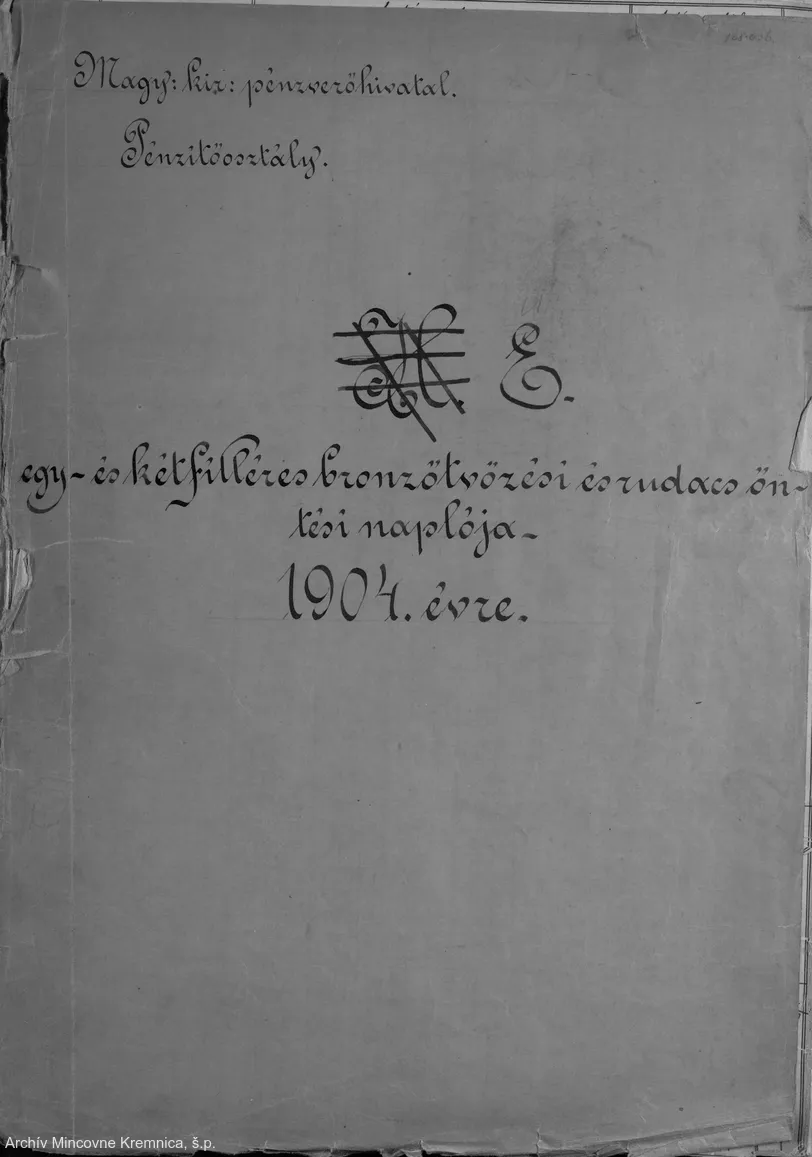 Magy: kir: pénzverőhivatal.
Pénzitőosztály.
E.
egy- és kétfilléres bronzötvözési és rudacs ön-
tési naplója-
1904. évre.
Archív Mincovne Kremnica, š.p.